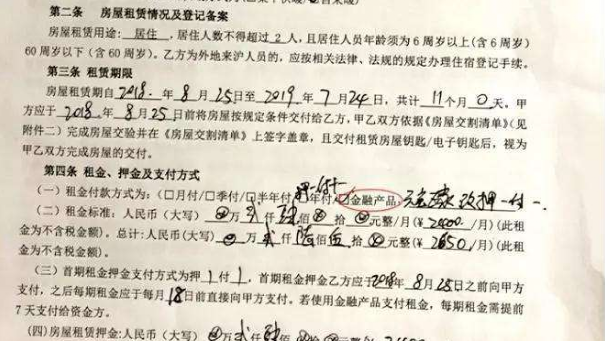 第二条 房屋租赁情况及登记备案
房屋租赁用途:居住,居住人数不得超过 2 人,且居住人员年龄须为 6 周岁以上(含 6 周岁)
60 周岁以下(含 60 周岁)。乙方为外地来沪人员的,应按相关法律、法规的规定办理住宿登记手续。
第三条 租赁期限
房屋租期自 2018 年 8 月 25 日至 2019 年 7 月 24 日,共计 11 个月 0 天。甲
方应于 2018 年 8 月 25 日前将房屋按规定条件交付给乙方,甲乙双方依据《房屋交割清单》(见
附件二)完成房屋交验并在《房屋交割清单》上签字盖章,且交付租赁房屋钥匙/电子钥匙后,视为
甲乙双方完成房屋的交付。
第四条 租金、押金及支付方式
(一)租金付款方式为:(□月付/□季付/□半年付/年付/☑金融产品 改押一付一.
押一付一
(二)租金标准:人民币(大写)⊗万 贰 仟 ⊗ 拾 ⊗ 元整/月(¥ /月)(此租
金为不含税金额)。总计:人民币(大写)⊗万 贰 仟 陆 佰 伍 拾 ⊗ 元整(¥ 2650 /月)(此租
金为不含税金额)。
(三)首期租金押金支付方式为押 1 付 1,首期租金押金乙方应于 2018 年 8 月 25 日之前向甲方
支付,之后每期租金应于每月 18 日前直接向甲方支付。若使用金融产品支付租金,每期租金需提前
7 天支付给资金方。
(四)房屋租赁押金:人民币(大写)⊗万 贰 仟